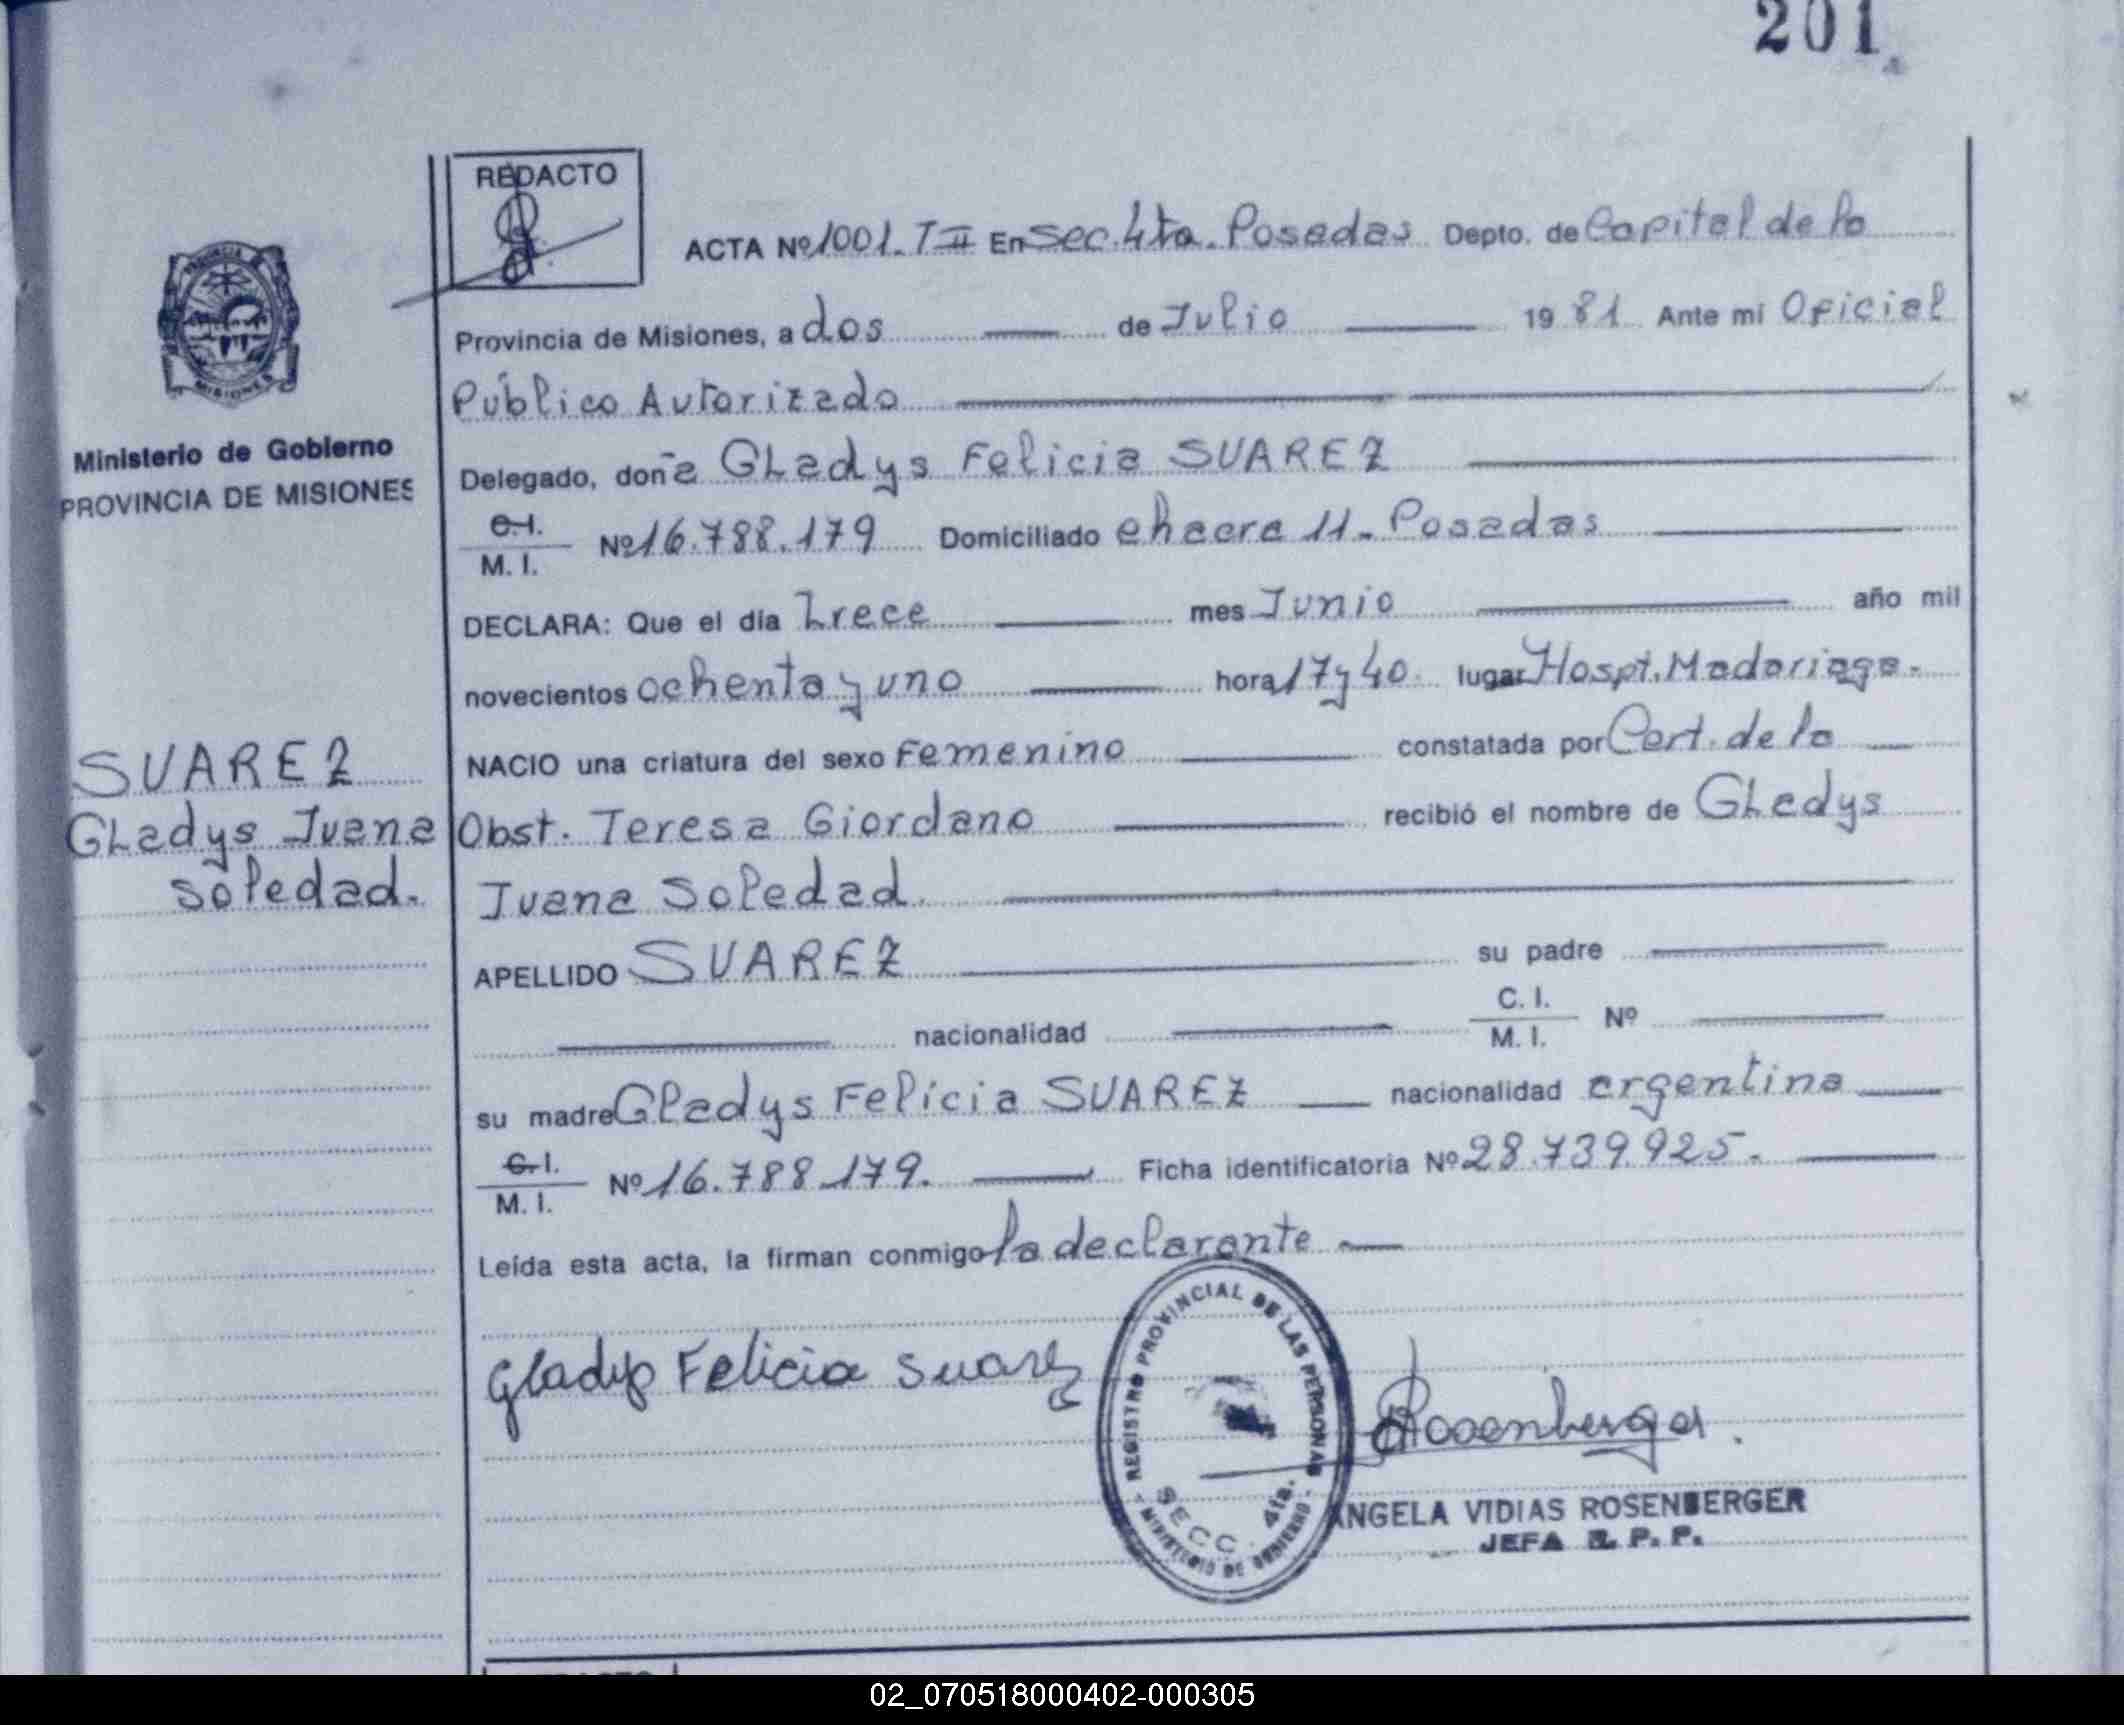 201
REDACTO
ACTA Nº 1001. T II En Sec. 4ta. Posadas Depto. de Capital de la
Provincia de Misiones, a dos de Julio 19 81 Ante mi Oficial
Público Autorizado
Delegado, doña GLadys Felicia SUAREZ
C. I. M. I. Nº 16.788.179 Domiciliado chacra 11. Posadas
DECLARA: Que el día trece mes Junio año mil
novecientos ochenta y uno hora 17 y 40 lugar Hospt. Madariaga.
NACIO una criatura del sexo Femenino constatada por Cert. de la
Obst. Teresa Giordano recibió el nombre de GLadys
Juana Soledad.
APELLIDO SUAREZ su padre
nacionalidad C. I. M. I. Nº
su madre Gladys Felicia SUAREZ nacionalidad argentina
C. I. M. I. Nº 16.788.179. Ficha identificatoria Nº 28.739.925.
Leída esta acta, la firman conmigo la declarante
Gladys Felicia Suarez
Rosenberger
ANGELA VIDIAS ROSENBERGER
JEFA R. P. P.
REGISTRO PROVINCIAL DE LAS PERSONAS
SECC. 4ta.
MINISTERIO DE GOBIERNO
PROVINCIA DE
MISIONES
Ministerio de Gobierno
PROVINCIA DE MISIONES
SUAREZ
GLadys Juana
Soledad.
02_070518000402-000305